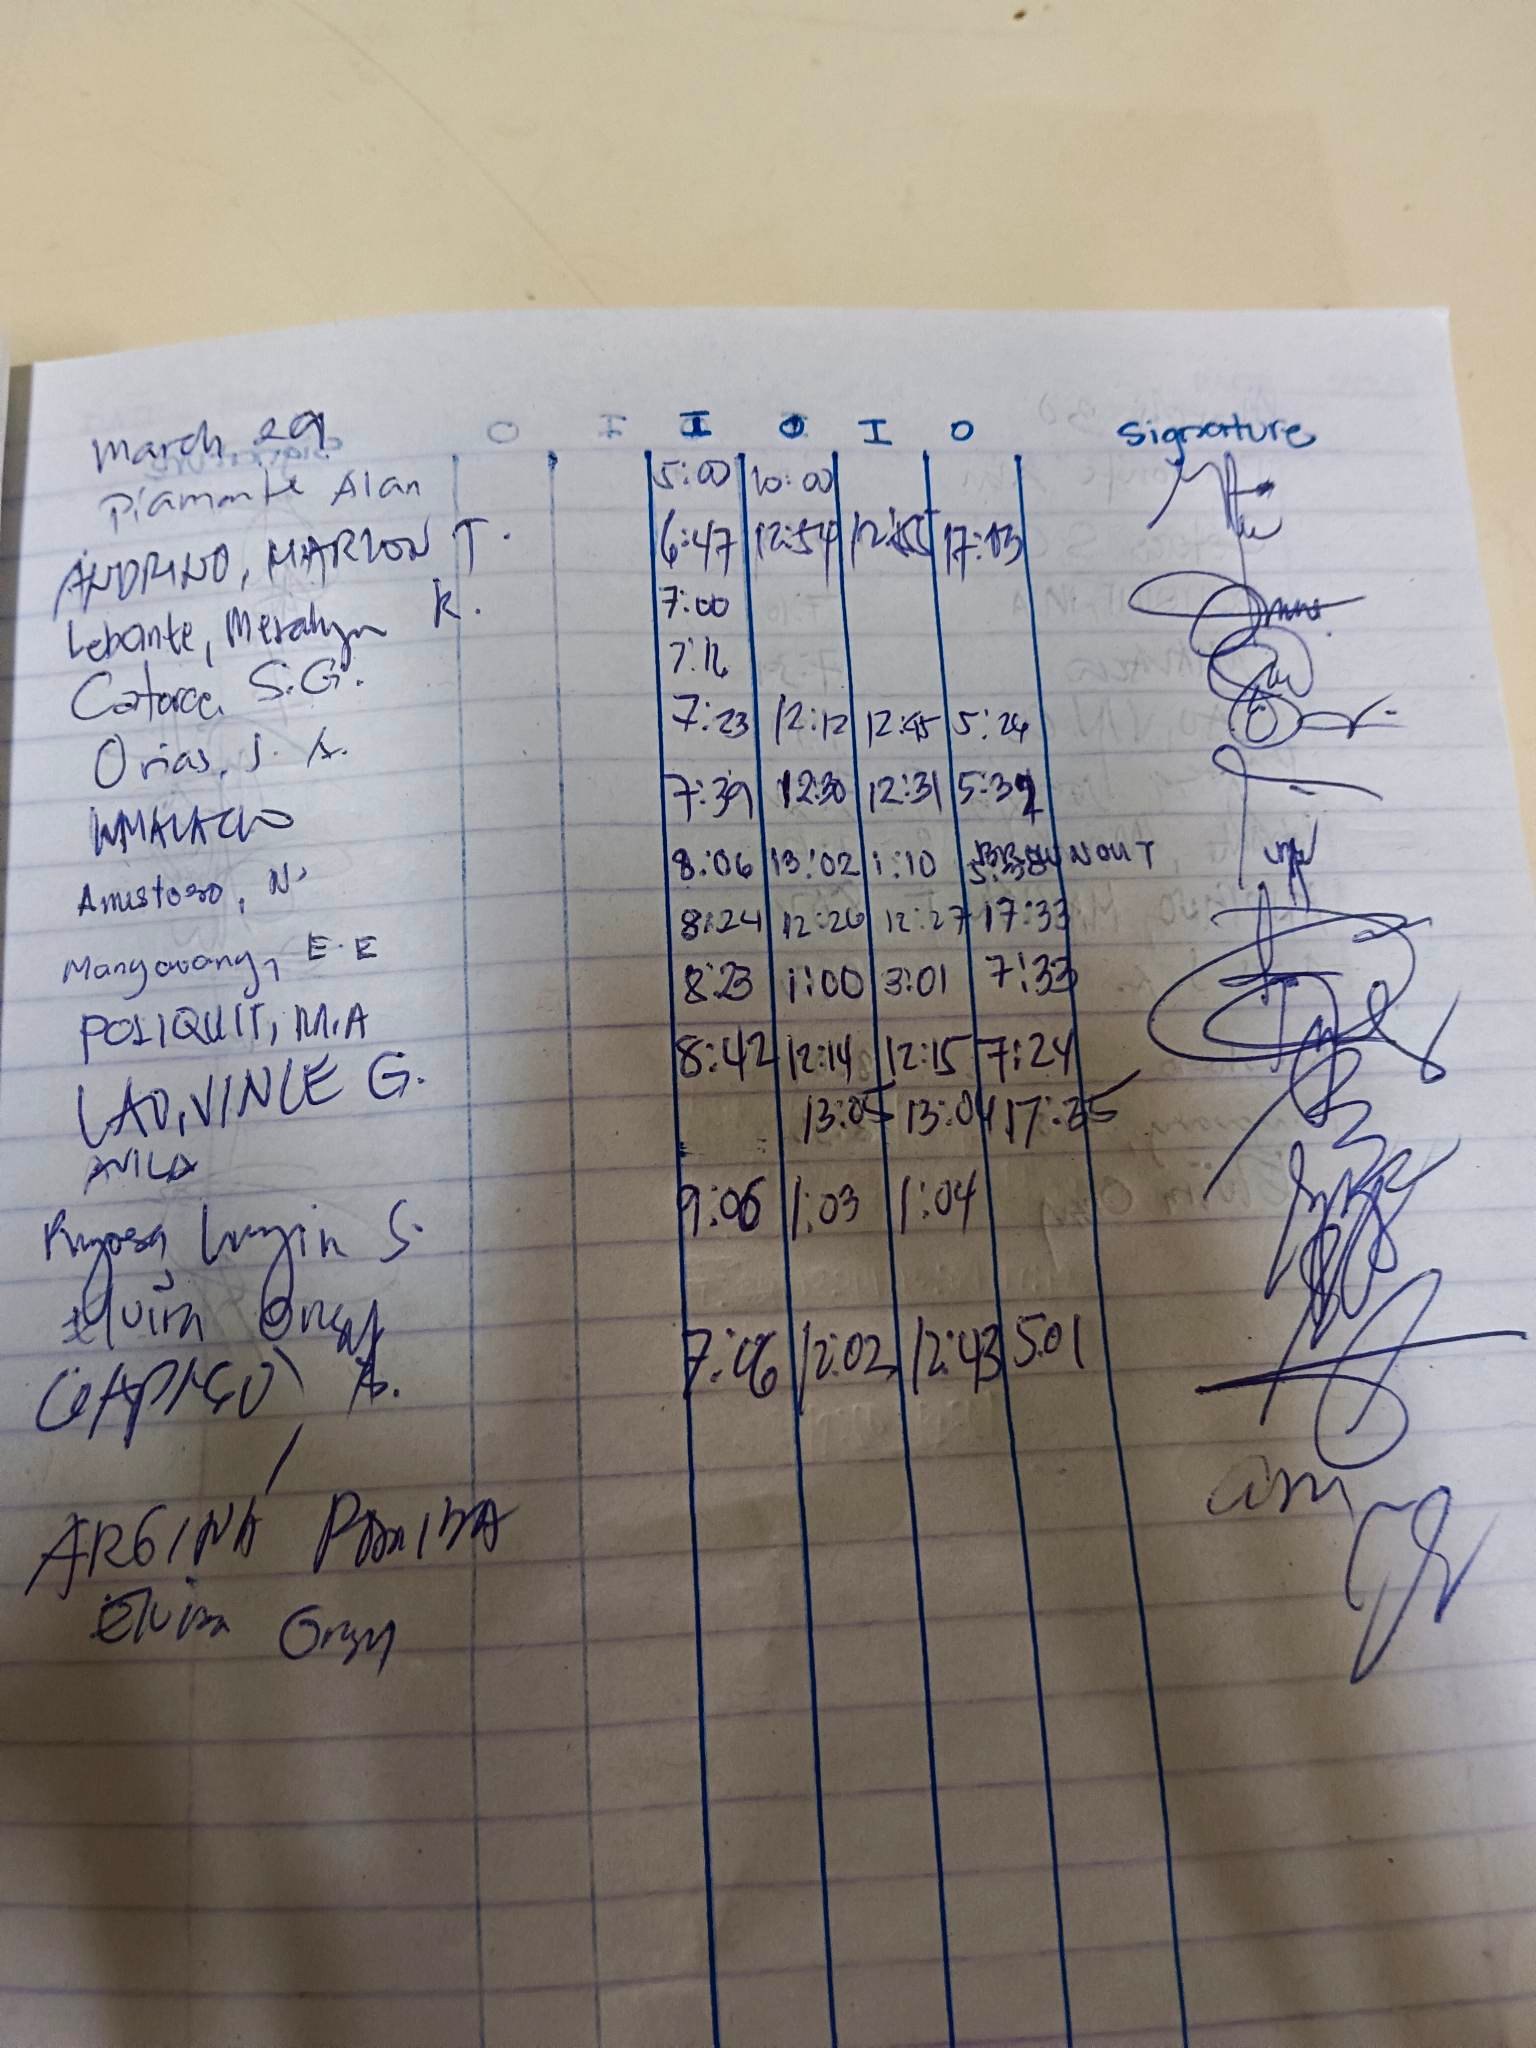 March 29 I O I O Signature
Piamonte Alan 5:00 10:00
ANDRINO, MARLON T. 6:47 12:54 12:55 17:03
Lebante, Meralyn K. 7:00
Catorce, S.G. 7:12
Orias, J. A. 7:23 12:12 12:45 5:26
7:39 12:30 12:31 5:39
Amistoso, N. 8:06 13:02 1:10 BROWNOUT
E.E 8:24 12:26 12:27 17:33
POSIQUIT, M.A 8:23 1:00 3:01 7:33
LAO, VINCE G. 8:42 12:14 12:15 7:24
AVILA 13:05 13:04 17:35
S. 9:06 1:03 1:04
Elvira
CAPISO A. 7:06 12:02 12:43 5:01
ARGINA
Elvira